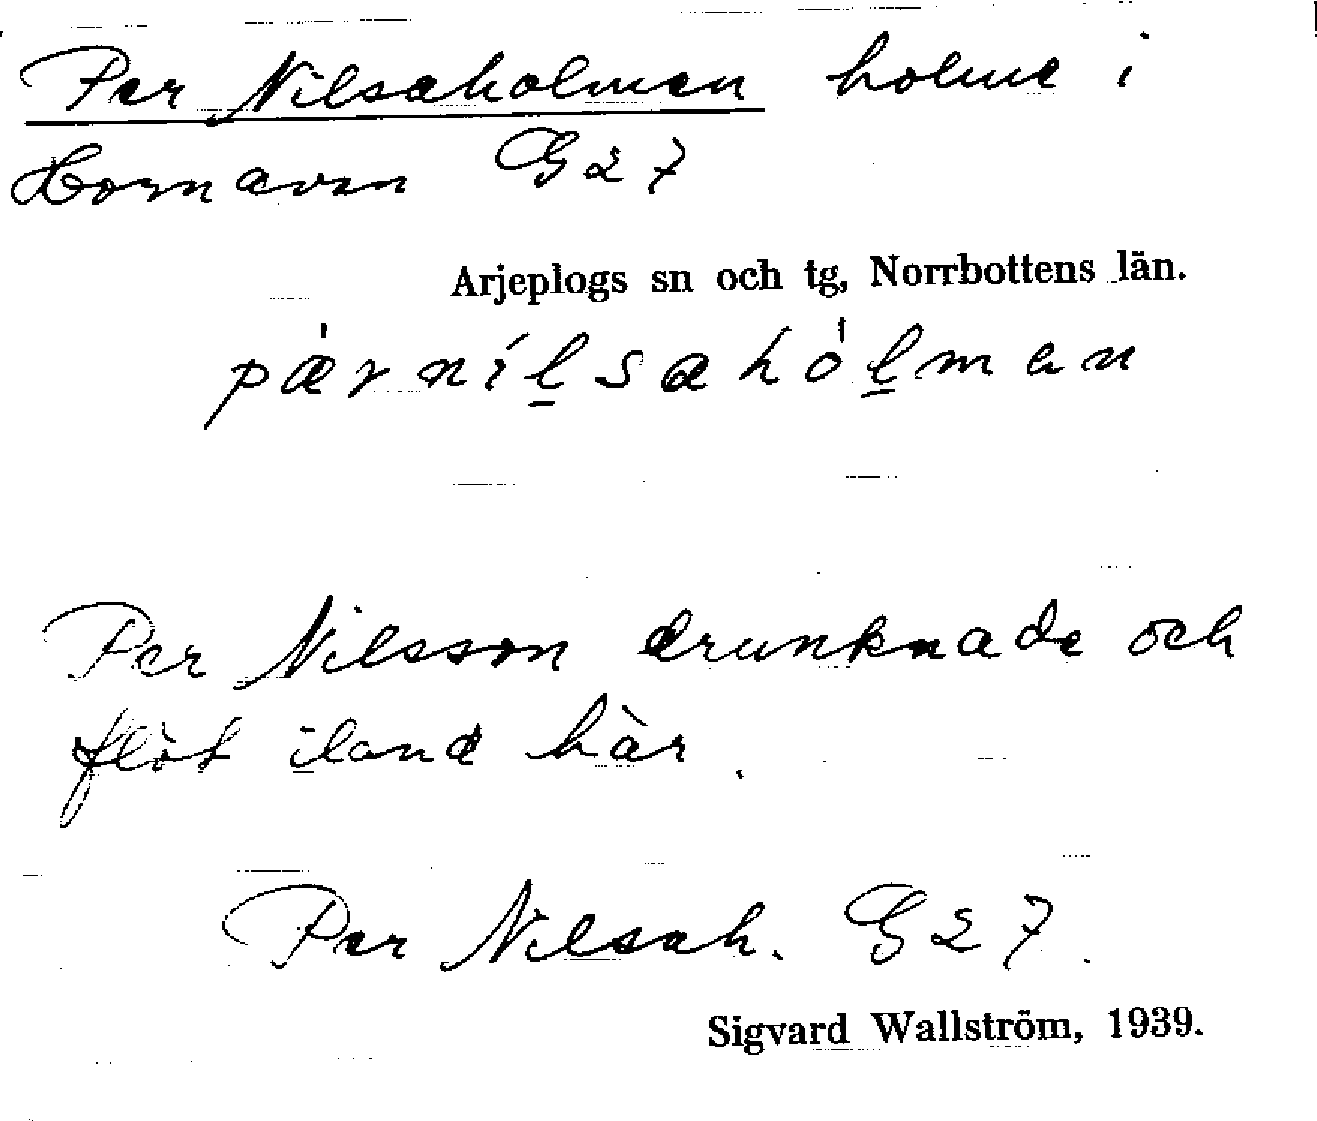 Per Nilsaholmen holme i
Hornavan G27
Arjeplogs sn och tg, Norrbottens län.
pæ̍rnílsahó̍lman
Per Nilsson drunknade och
flöt iland här.
Per Nilsah. G27.
Sigvard Wallström, 1939.